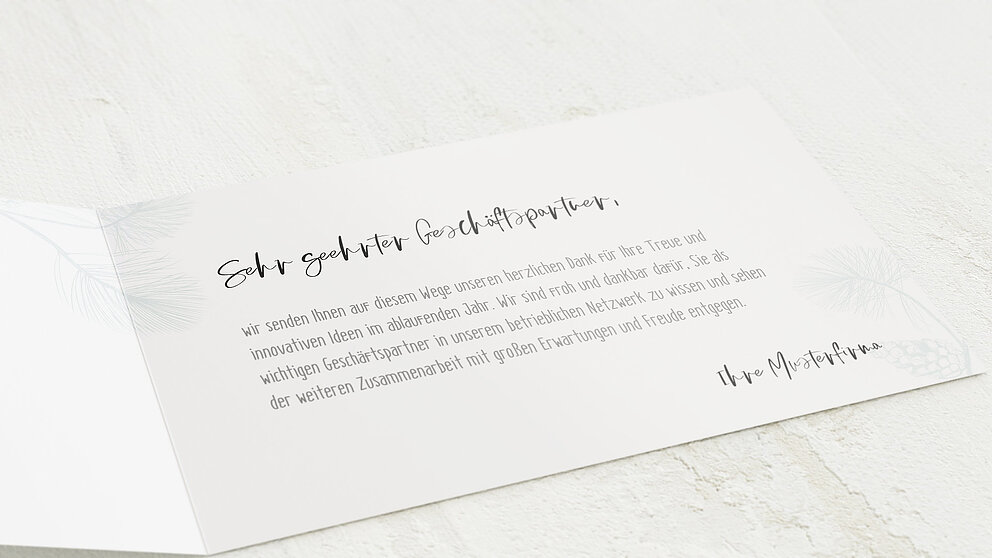 Sehr geehrter Geschäftspartner,
wir senden Ihnen auf diesem Wege unseren herzlichen Dank für Ihre Treue und
innovativen Ideen im ablaufenden Jahr. Wir sind froh und dankbar dafür, Sie als
wichtigen Geschäftspartner in unserem betrieblichen Netzwerk zu wissen und sehen
der weiteren Zusammenarbeit mit großen Erwartungen und Freude entgegen.
Ihre Musterfirma